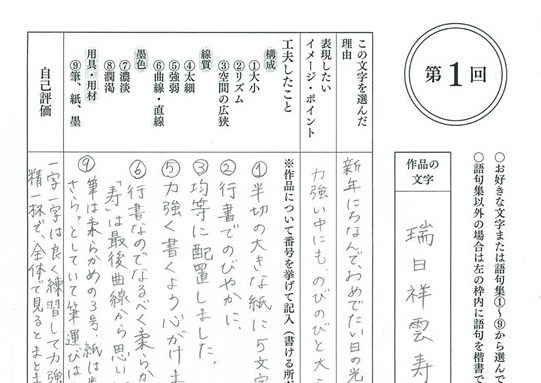 第1回
○お好きな文字または語句集①〜⑨から選んで
○語句集以外の場合は左の枠内に語句を楷書で
作品の文字
瑞日祥雲寿
この文字を選んだ理由
新年にちなんでおめでたい日の光
表現したいイメージ・ポイント
力強い中にも、のびのびと大
工夫したこと
※作品について番号を挙げて記入(書ける所が
構成
①大小
②リズム
③空間の広狭
線質
④太細
⑤強弱
⑥曲線・直線
墨色
⑦濃淡
⑧潤渇
用具・用材
⑨筆、紙、墨
①半切の大きな紙に5文字
②行書でのびやかに。
③均等に配置しました。
⑤力強く書くよう心がけま
⑥行書なのでなるべく柔らか
「寿」は最後曲線から思い
⑨筆は柔らかめの3号、紙は
さらっとしていて筆運びは
自己評価
一字一字は良く練習して力強
精一杯で、全体で見るとまとま